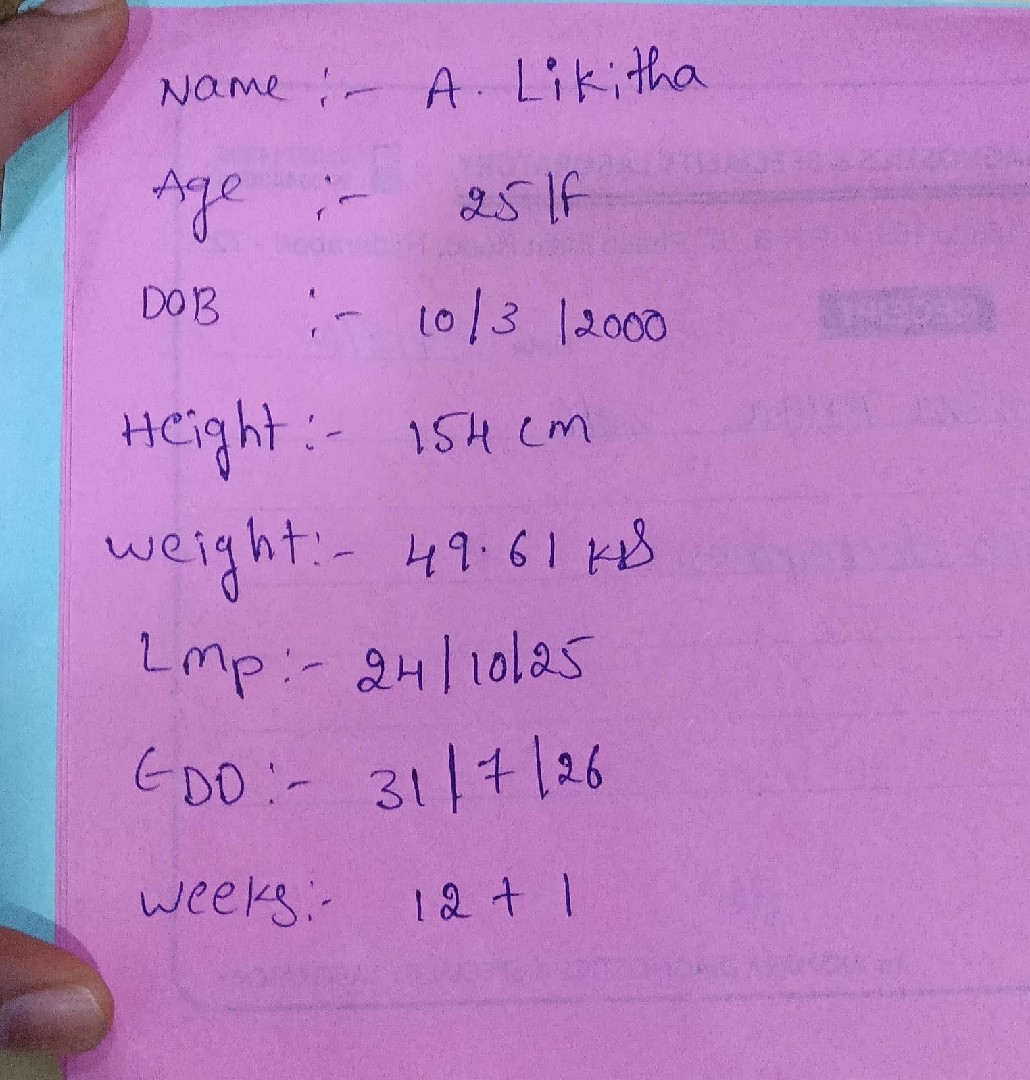 Name :- A. Likitha
Age :- 25/F
DOB :- 10/3/2000
Height :- 154 cm
Weight :- 49.61 kgs
Lmp :- 24/10/25
EDD :- 31/7/26
Weeks :- 12 + 1